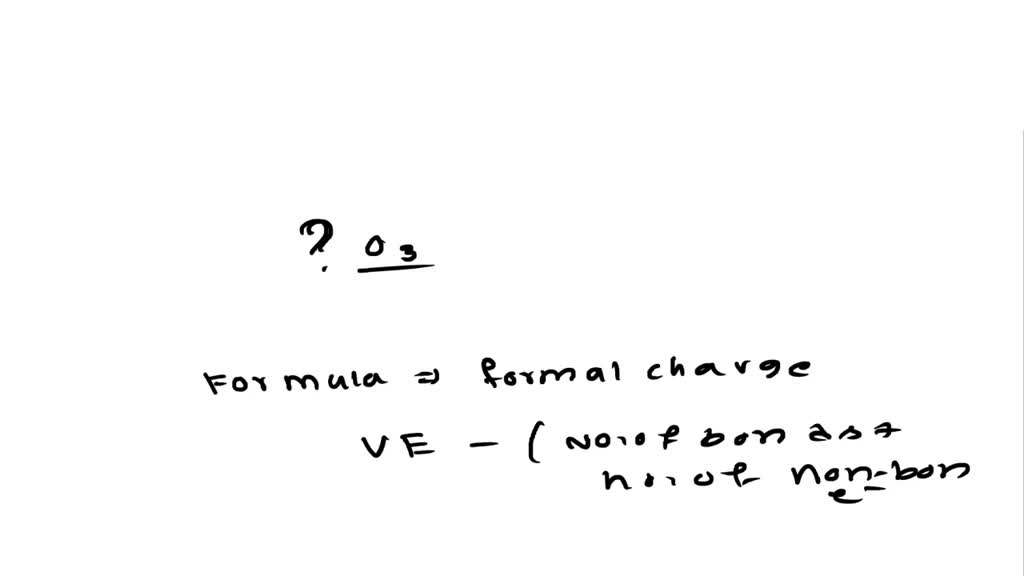 ? O3
Formula ⇒ formal charge
VE - (No. of bonds +
no. of non-bon
e-